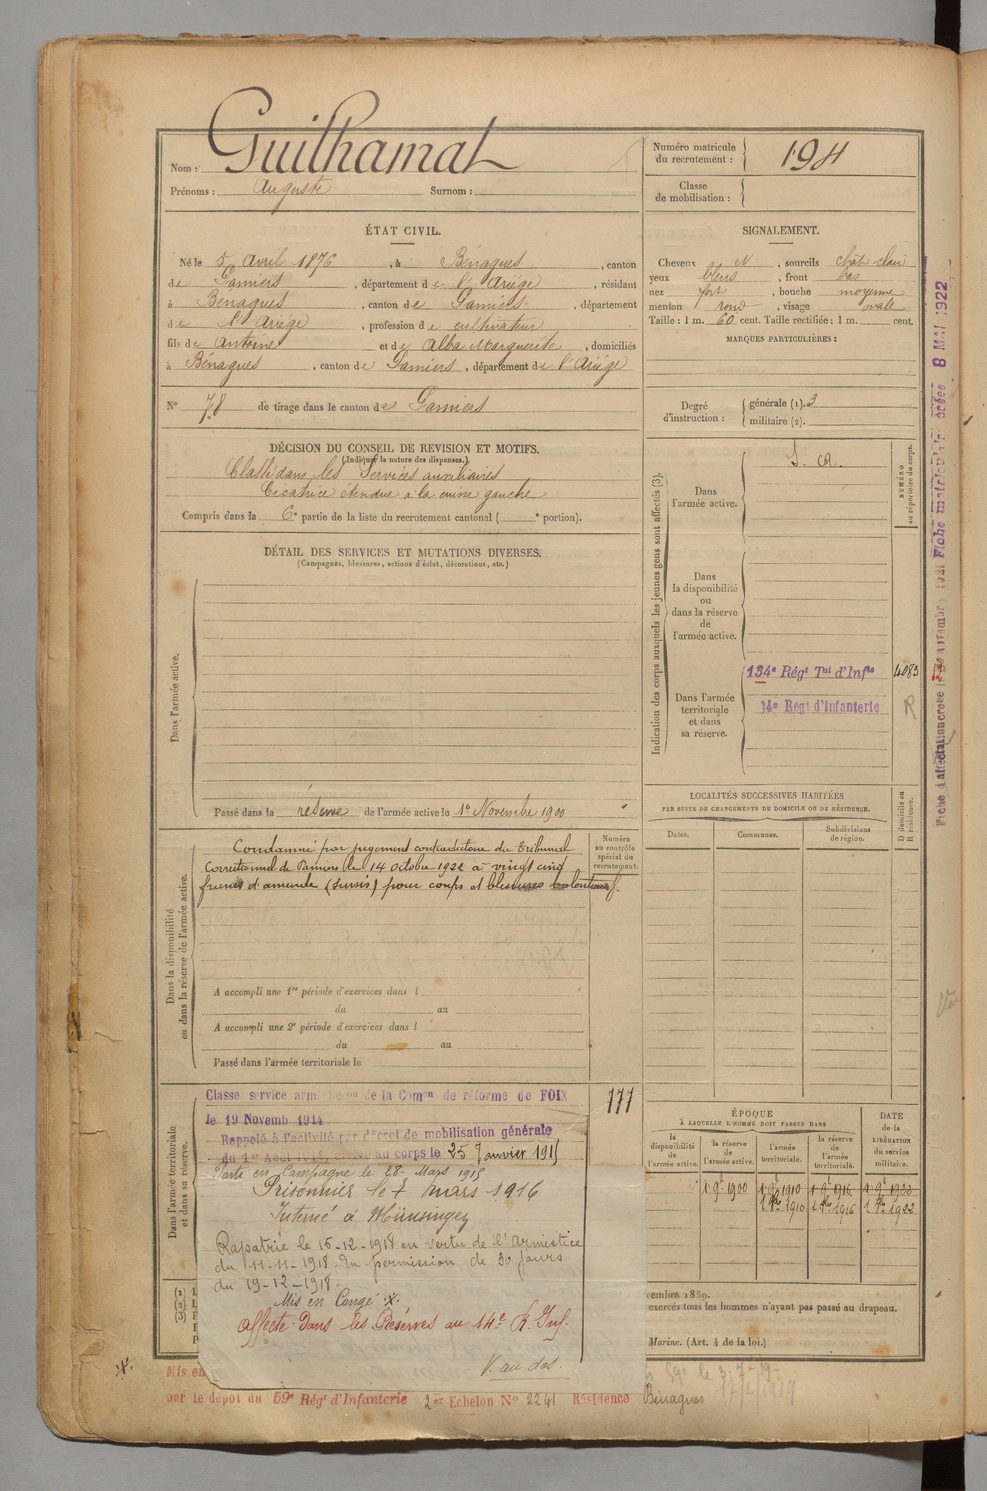 Nom : Guilhamat
Prénoms : Auguste Surnom :
Numéro matricule du recrutement : 194
Classe de mobilisation :
ÉTAT CIVIL.
Né le 5 avril 1876, à Bénagues, canton
de Pamiers, département de l'Ariège, résidant
à Bénagues, canton de Pamiers, département
de l'Ariège, profession de cultivateur
fils de Antoine et de Alba Marguerite, domiciliés
à Bénagues, canton de Pamiers, département de l'Ariège
N° 78 de tirage dans le canton de Pamiers
SIGNALEMENT.
Cheveux N, sourcils chât-clair
yeux bleus, front bas
nez fort, bouche moyenne
menton rond, visage ovale
Taille : 1 m. 60 cent. Taille rectifiée : 1 m. cent.
MARQUES PARTICULIÈRES :
Degré d'instruction : générale (1). 3
militaire (2).
DÉCISION DU CONSEIL DE REVISION ET MOTIFS.
(Indiquer la nature des dispenses.)
Classé dans les Services auxiliaires
Cicatrice étendue à la cuisse gauche
Compris dans la 6e partie de la liste du recrutement cantonal ( e portion).
DÉTAIL DES SERVICES ET MUTATIONS DIVERSES.
(Campagnes, blessures, actions d'éclat, décorations, etc.)
Dans l'armée active.
Passé dans la réserve de l'armée active le 1er Novembre 1900
Indication des corps auxquels les jeunes gens sont affectés (3).
NUMÉRO au répertoire du corps.
Dans l'armée active.
S. a.
Dans la disponibilité ou dans la réserve de l'armée active.
Dans l'armée territoriale et dans sa réserve.
134e Régt Tal d'Infie 4083
14e Regt d'Infanterie R
Dans la disponibilité ou dans la réserve de l'armée active.
Numéro au contrôle spécial du recrutement.
Condamné par jugement contradictoire du Tribunal
Correctionnel de Pamiers le 14 octobre 1922 à vingt cinq
francs d'amende (sursis) pour coups et blessures volontaires.
A accompli une 1re période d'exercices dans l
du au
A accompli une 2e période d'exercices dans l
du au
Passé dans l'armée territoriale le
LOCALITÉS SUCCESSIVES HABITÉES
PAR SUITE DE CHANGEMENTS DE DOMICILE OU DE RÉSIDENCE.
Dates. Communes. Subdivisions de région.
D domicile ou R résidence.
Dans l'armée territoriale et dans sa réserve.
Classe service armé Déčon de la Comon de réforme de FOIX 177
le 19 Novemb 1914
Rappelé à l'activité par décret de mobilisation générale
du 1er Août 1914, au corps le 25 Janvier 1915
Parti en Campagne le 28 Mars 1915
Prisonnier le 7 mars 1916
Interné à Münsingen
Rapatrié le 16-12-1918 en vertu de l'Armistice
du 11-11-1918. En permission de 30 jours
du 19-12-1918.
Mis en Congé .x.
Affecté Dans les Réserves au 14e R. Inf.
V. au dos.
ÉPOQUE
À LAQUELLE L'HOMME DOIT PASSER DANS
la disponibilité de l'armée active. la réserve de l'armée active. l'armée territoriale. la réserve de l'armée territoriale.
DATE de la LIBÉRATION du service militaire.
1 9bre 1900 1 9bre 1910 1 9bre 1916 1 9bre 1922
1 8bre 1910 1 8bre 1916 1 8bre 1922
(1)
(2)
(3)
vembre 1889.
exercés tous les hommes n'ayant pas passé au drapeau.
Marine. (Art. 4 de la loi.)
.x.
Mis en
59e le 3-7-19
par le dépôt du 59e Régt d'Infanterie 2er Echelon N° 2241 Résidence Bénagues
8 MAI 1922